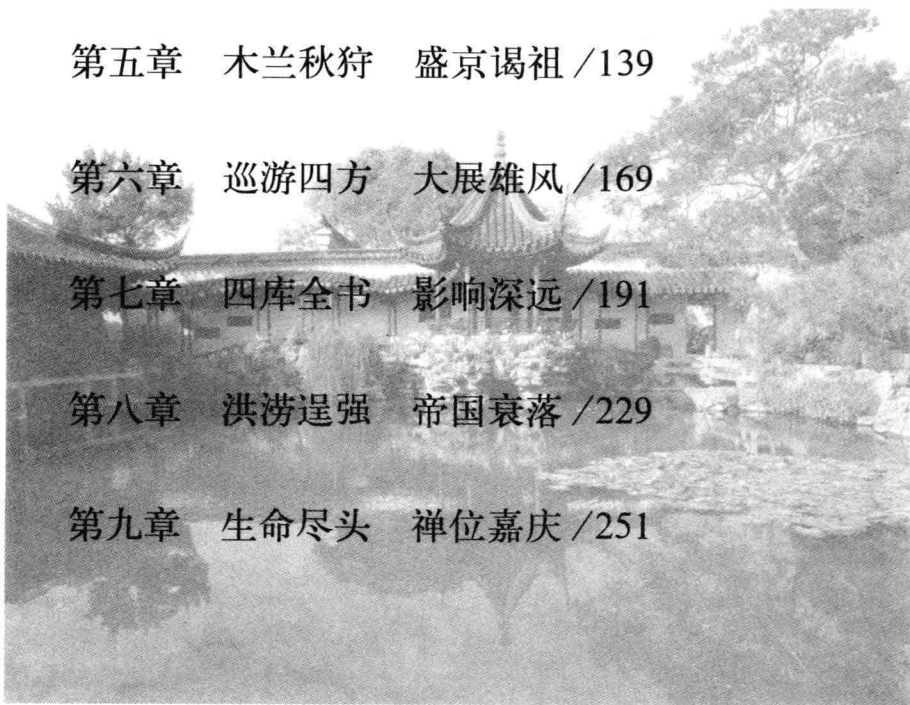 第五章 木兰秋狩 盛京谒祖 /139
第六章 巡游四方 大展雄风 /169
第七章 四库全书 影响深远 /191
第八章 洪涝逞强 帝国衰落 /229
第九章 生命尽头 禅位嘉庆 /251